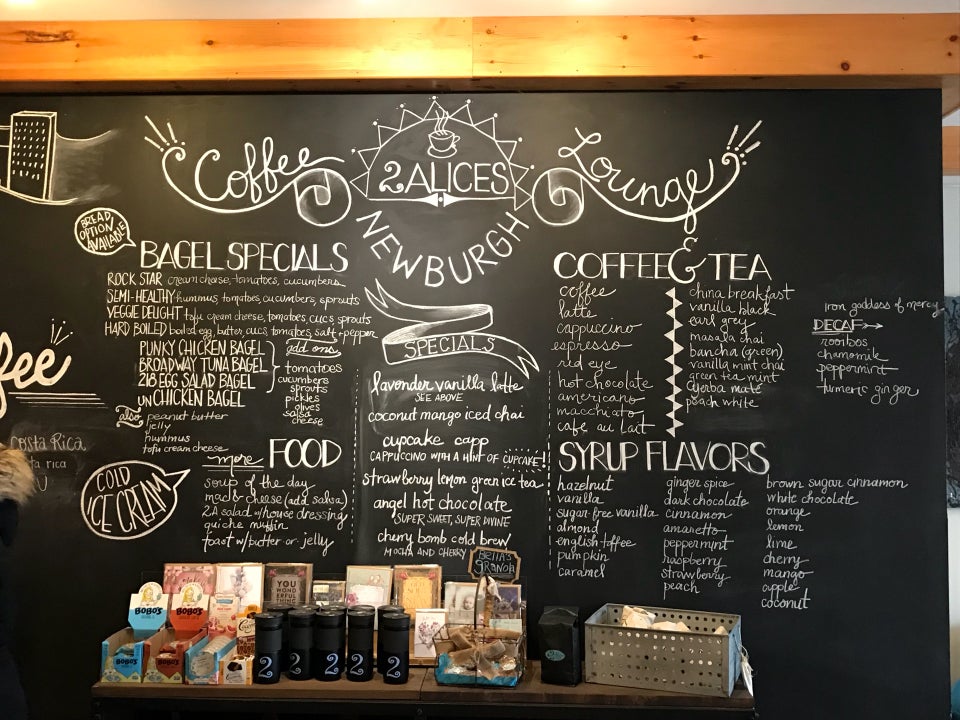 Coffee
2 ALICES
Lounge
NEWBURGH
BREAD
OPTION
AVAILABLE
BAGEL SPECIALS
ROCK STAR cream cheese, tomatoes, cucumbers
SEMI-HEALTHY hummus, tomatoes, cucumbers, sprouts
VEGGIE DELIGHT tofu cream cheese, tomatoes, cucs, sprouts
HARD BOILED boiled egg, butter, cucs, tomatoes, salt + pepper
PUNKY CHICKEN BAGEL
BROADWAY TUNA BAGEL
218 EGG SALAD BAGEL
UN CHICKEN BAGEL
add ons
tomatoes
cucumbers
sprouts
pickles
olives
salsa
cheese
also
peanut butter
jelly
hummus
tofu cream cheese
more FOOD
soup of the day
mac & cheese (add salsa)
2A salad w/house dressing
quiche muffin
toast w/butter or jelly
COLD
ICE CREAM
fee
Costa Rica
ta rica
SPECIALS
lavender vanilla latte
SEE ABOVE
coconut mango iced chai
cupcake capp
CAPPUCCINO WITH A HINT OF CUPCAKE!
strawberry lemon green ice tea
angel hot chocolate
SUPER SWEET, SUPER DIVINE
cherry bomb cold brew
MOCHA AND CHERRY
BELLA'S
GRANOLA
COFFEE & TEA
coffee
latte
cappuccino
espresso
red eye
hot chocolate
americano
macchiato
cafe au lait
china breakfast
vanilla black
earl grey
masala chai
bancha (green)
vanilla mint chai
green tea mint
yerba mate
peach white
iron goddess of mercy
DECAF
rooibos
chamomile
peppermint
tumeric ginger
SYRUP FLAVORS
hazelnut
vanilla
sugar free vanilla
almond
english toffee
pumpkin
caramel
ginger spice
dark chocolate
cinnamon
amaretto
peppermint
raspberry
strawberry
peach
brown sugar cinnamon
white chocolate
orange
lemon
lime
cherry
mango
apple
coconut
BOBO'S
BOBO'S
BOBO'S
BOBO'S
YOU
WONDERFUL
THING
2
2
2
2
2